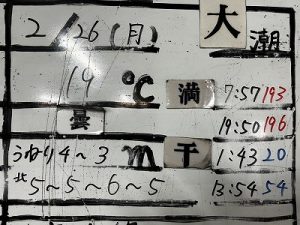 2/26(月) 大潮
14℃ 満 7:57 193
曇 19:50 196
うねり4~3m 干 1:43 20
北5~5~6~5 13:54 54